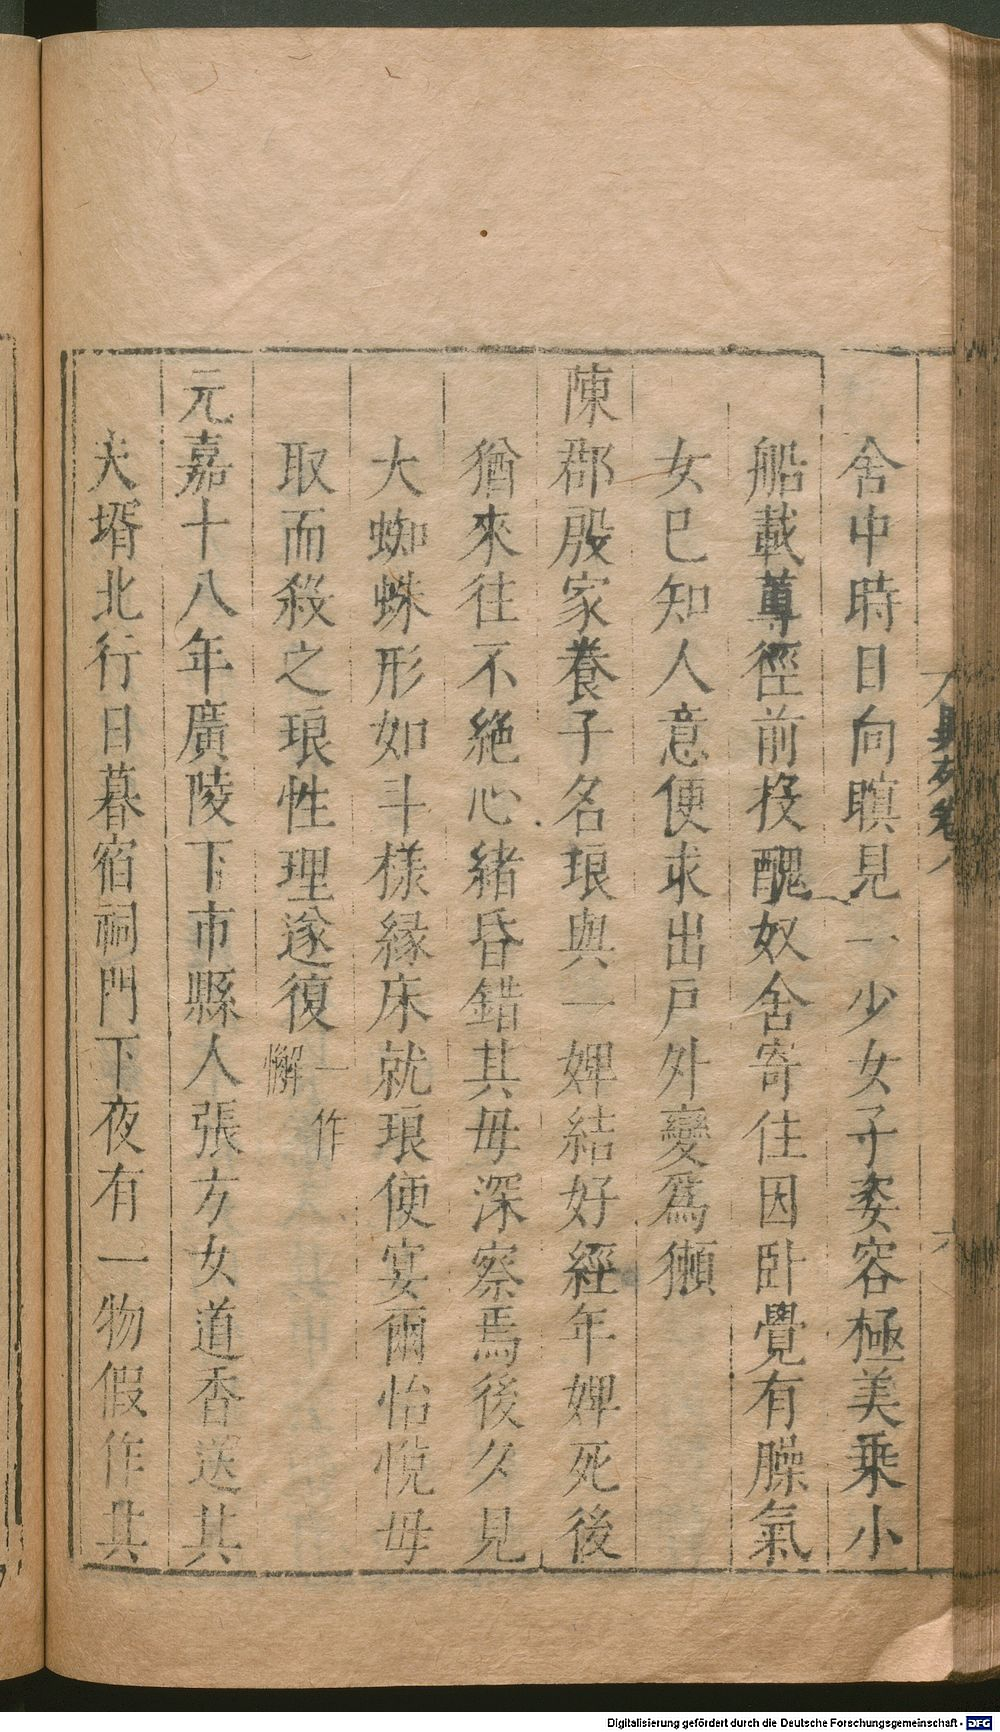 舍中時日向暝見一少女子姿容極美乗小
船載蓴徑前投醜奴舍寄住因卧覺有臊氣
女已知人意便求出戸外變爲獺
陳郡殷家養子名琅與一婢結好經年婢死後
猶來往不絶心緒昏錯其母深察焉後夕見
大蜘蛛形如斗樣縁床就琅便宴爾怡悅母
取而殺之琅性理遂復一作懈
元嘉十八年廣陵下市縣人張方女道香送其
夫壻北行日暮宿祠門下夜有一物假作其
Digitalisierung gefördert durch die Deutsche Forschungsgemeinschaft - DFG